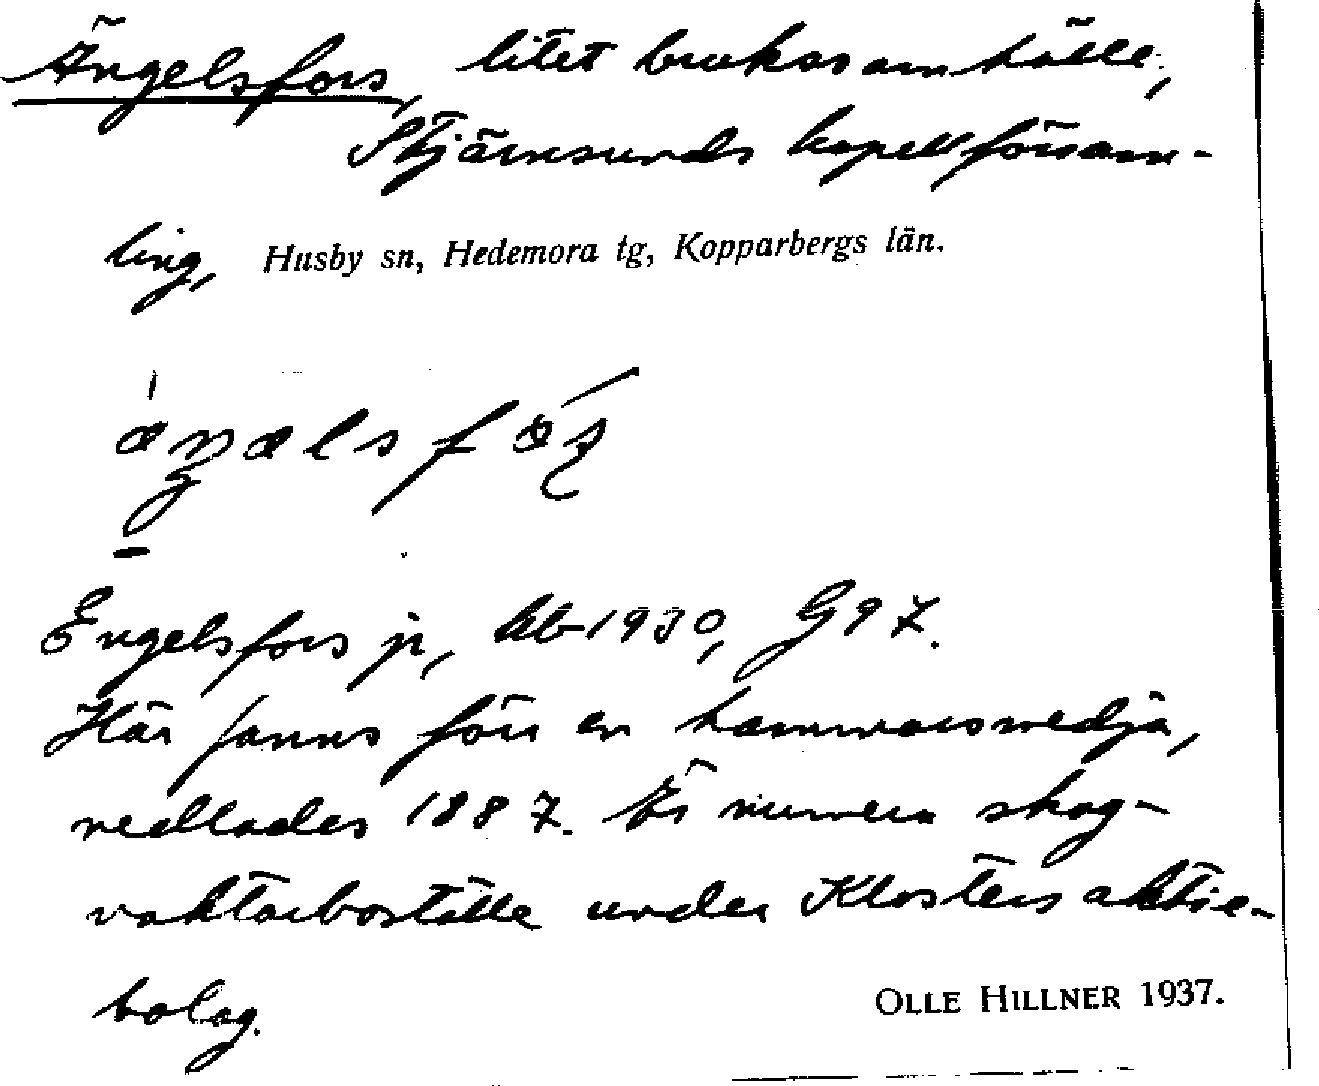 Ängelsfors, litet brukssamhälle,
Stjärnsunds kapellförsam-
ling, Husby sn, Hedemora tg, Kopparbergs län.
Engelsfors jr, Ab 1930, G97.
Här fanns förr en hammarsmedja,
nedlades 1887. Är numera skog-
vaktarboställe under Klosters aktie-
bolag.
OLLE HILLNER 1937.